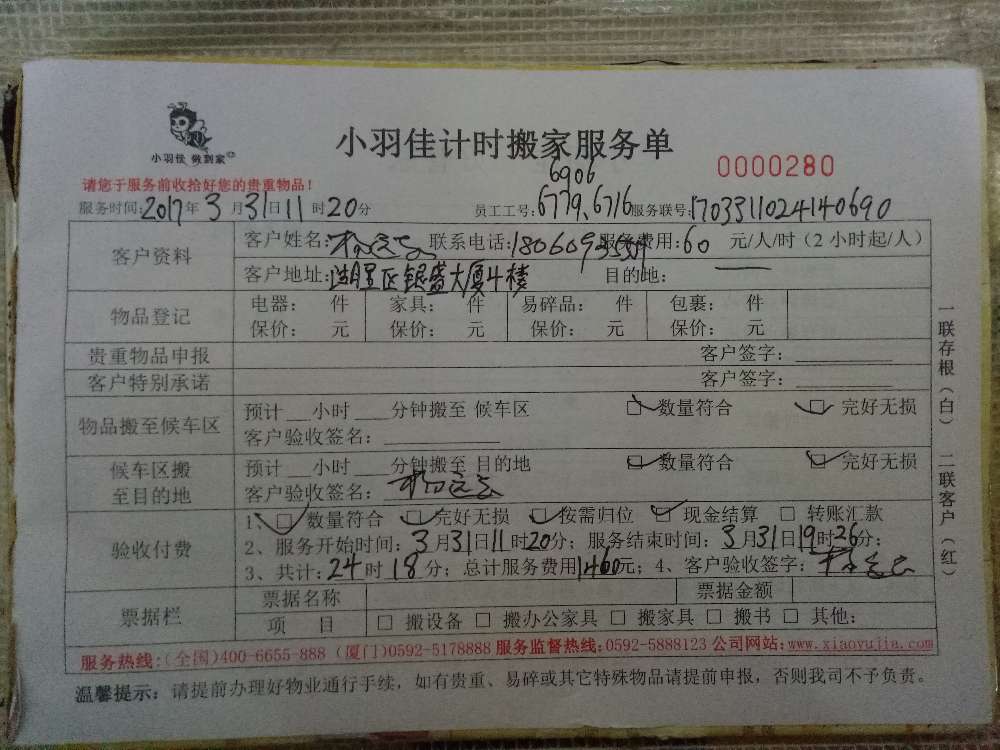 小羽佳 做到家
小羽佳计时搬家服务单
0000280
请您于服务前收拾好您的贵重物品!
6906
服务时间:2017年3月31日11时20分 员工工号:6779、6716 服务联号:1703311024140690
客户资料 客户姓名: 联系电话:180609 服务费用:60 元/人/时(2小时起/人)
客户地址:湖里区银盛大厦4楼 目的地:
物品登记 电器: 件 家具: 件 易碎品: 件 包裹: 件
保价: 元 保价: 元 保价: 元 保价: 元
贵重物品申报 客户签字:
客户特别承诺 客户签字:
物品搬至候车区 预计 小时 分钟搬至 候车区 数量符合 完好无损
客户验收签名:
候车区搬至目的地 预计 小时 分钟搬至 目的地 数量符合 完好无损
客户验收签名:
验收付费 1、数量符合 完好无损 按需归位 现金结算 转账汇款
2、服务开始时间:3月31日11时20分;服务结束时间:3月31日19时26分;
3、共计:24时18分;总计服务费用1460元;4、客户验收签字:
票据栏 票据名称 票据金额
项 目 搬设备 搬办公家具 搬家具 搬书 其他:
服务热线:(全国)400-6655-888 (厦门)0592-5178888 服务监督热线:0592-5888123 公司网站:www.xiaoyujia.com
温馨提示:请提前办理好物业通行手续,如有贵重、易碎或其它特殊物品请提前申报,否则我司不予负责。
一联存根(白) 二联客户(红)